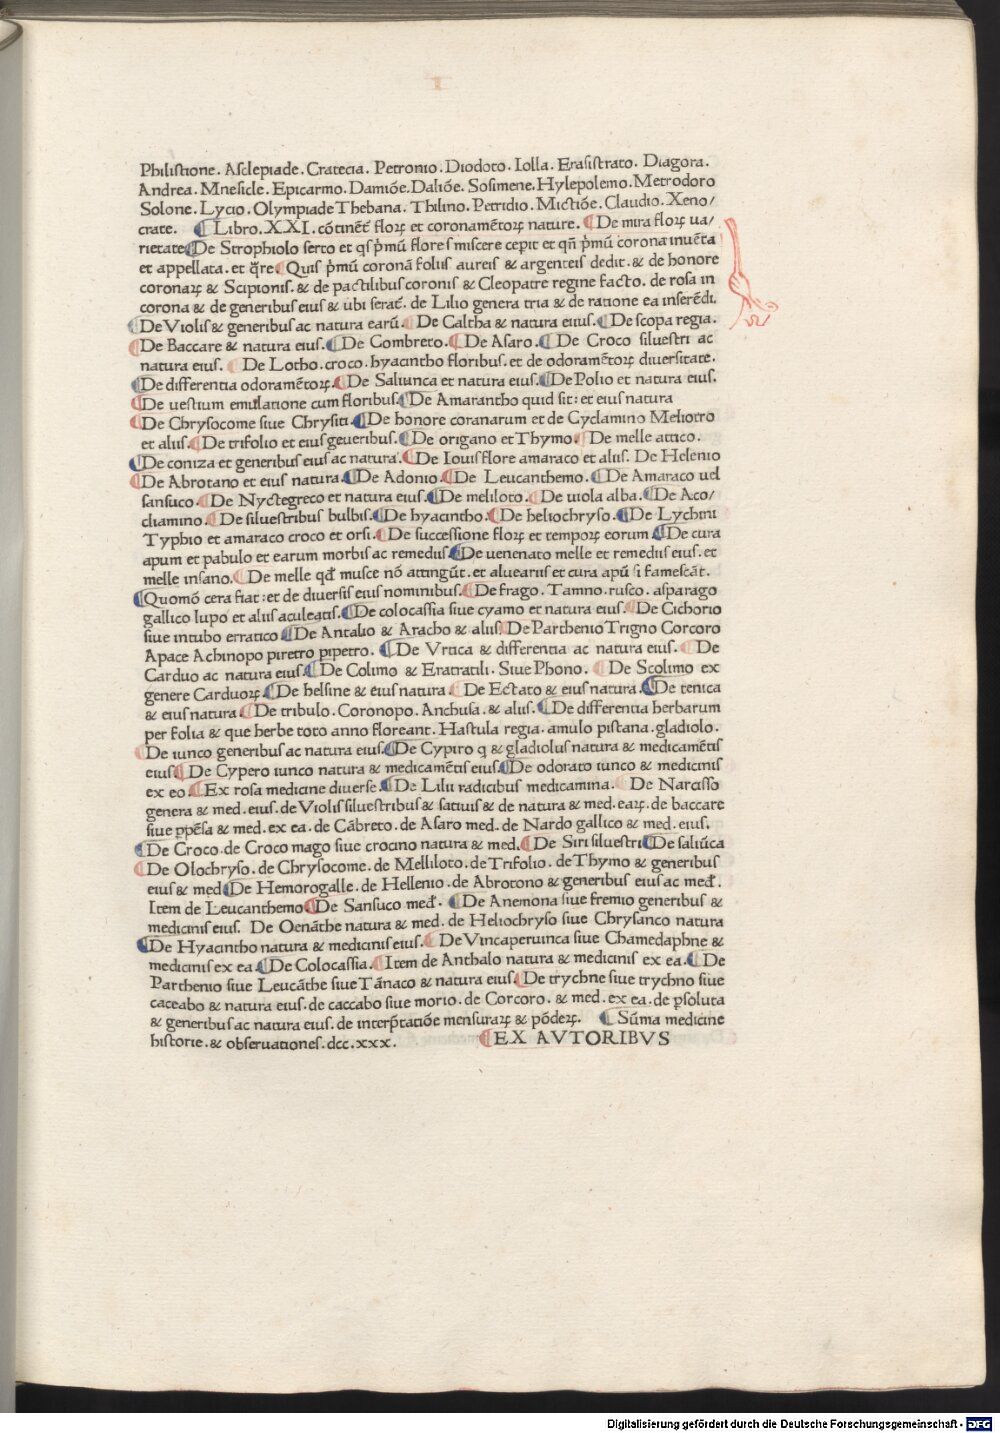 I
Philistione. Asclepiade. Cratecia. Petronio. Diodoto. Iolla. Erasistrato. Diagora.
Andrea. Mnesicle. Epicarmo. Damiõe. Daliõe. Sosimene. Hylepolemo. Metrodoro
Solone. Lycio. Olympiade Thebana. Thilino. Petridio. Mictiõe. Claudio. Xeno/
crate. ¶ Libro. XXI. cõtinẽt̃ floꝝ et coronamẽtoꝝ nature. ¶ De mira floꝝ ua/
rietate ¶ De Strophiolo serto et qs p̃mũ flores miscere cepit et qñ p̃mũ corona inuẽta
et appellata. et q̃re ¶ Quis p̃mũ coronã foliis aureis & argenteis dedit. & de honore
coronaꝝ & Scipionis. & de pactilibus coronis & Cleopatre regine facto. de rosa in
corona & de generibus eius & ubi serat̃. de Lilio genera tria & de ratione ea inserẽdi.
¶ De Violis & generibus ac natura earũ. ¶ De Caltha & natura eius. ¶ De scopa regia.
¶ De Baccare & natura eius. ¶ De Combreto. ¶ De Asaro. ¶ De Croco siluestri ac
natura eius. ¶ De Lotho. croco. hyacintho floribus. et de odoramẽtoꝝ diuersitate.
¶ De differentia odoramẽtoꝝ. ¶ De Saliunca et natura eius. ¶ De Polio et natura eius.
¶ De uestium emulatione cum floribus ¶ De Amarantho quid sit: et eius natura
¶ De Chrysocome siue Chrysiti. ¶ De honore coranarum et de Cyclamino Meliotro
et aliis. ¶ De trifolio et eius geueribus. ¶ De origano et Thymo. ¶ De melle attico.
¶ De coniza et generibus eius ac natura. ¶ De Iouis flore amaraco et aliis. De Helenio
¶ De Abrotano et eius natura. ¶ De Adonio. ¶ De Leucanthemo. ¶ De Amaraco uel
sansuco. ¶ De Nyctegreco et natura eius. ¶ De meliloto. ¶ De uiola alba. ¶ De Aco/
cliamino. ¶ De siluestribus bulbis. ¶ De hyacintho. ¶ De heliochryso. ¶ De Lychini
Typhio et amaraco croco et orsi. ¶ De successione floꝝ et tempoꝝ eorum ¶ De cura
apum et pabulo et earum morbis ac remediis ¶ De uenenato melle et remediis eius. et
melle insano. ¶ De melle qđ musce nõ attingũt. et aluearius et cura apũ si famescãt.
¶ Quomõ cera fiat: et de diuersis eius nominibus. ¶ De frago. Tamno. rusco. asparago
gallico lupo et aliis aculeatis. ¶ De colocassia siue cyamo et natura eius. ¶ De Cichorio
siue intubo erratico ¶ De Antalio & Aracho & aliis ¶ De Parthenio Trigno Corcoro
Apace Achinopo piretro pipetro. ¶ De Vrtica & differentia ac natura eius. ¶ De
Carduo ac natura eius ¶ De Colimo & Eratratili. Siue Phono. ¶ De Scolimo ex
genere Carduoꝝ. ¶ De helsine & eius natura ¶ De Ectato & eius natura. ¶ De tenica
& eius natura. ¶ De tribulo. Coronopo. Anchusa. & aliis. ¶ De differentia herbarum
per folia & que herbe toto anno floreant. Hastula regia. amulo pistana. gladiolo.
¶ De iunco generibus ac natura eius. ¶ De Cypiro q & gladiolus natura & medicamẽtis
eius ¶ De Cypero iunco natura & medicamẽtis eius ¶ De odorato iunco & medicinis
ex eo. ¶ Ex rosa medicine diuerse. ¶ De Lilii radicibus medicamina. ¶ De Narcisso
genera & med. eius. de Violis siluestribus & satiuis & de natura & med. eaꝝ. de baccare
siue ꝑpẽsa & med. ex ea. de Cãbreto. de Asaro med. de Nardo gallico & med. eius.
¶ De Croco. de Croco mago siue crocino natura & med. ¶ De Siri siluestri ¶ De saliũca
¶ De Olochryso. de Chrysocome. de Melliloto. de Trifolio. de Thymo & generibus
eius & med ¶ De Hemorogalle. de Hellenio. de Abrotono & generibus eius ac međ.
Item de Leucanthemo ¶ De Sansuco međ. ¶ De Anemona siue fremio generibus &
medicinis eius. De Oenãthe natura & med. de Heliochryso siue Chrysanco natura
¶ De Hyacintho natura & medicinis eius. ¶ De Vincaperuinca siue Chamedaphne &
medicinis ex ea ¶ De Colocassia. ¶ Item de Anthalo natura & medicinis ex ea. ¶ De
Parthenio siue Leucãthe siue Tãnaco & natura eius ¶ De trychne siue trychno siue
caceabo & natura eius. de caccabo siue morio. de Corcoro. & med. ex ea. de p̃soluta
& generibus ac natura eius. de interp̃tatiõe mensuraꝝ & põdeꝝ. ¶ Sũma medicine
historie. & obseruationes. dcc. xxx. ¶ EX AVTORIBVS
Digitalisierung gefördert durch die Deutsche Forschungsgemeinschaft - DFG